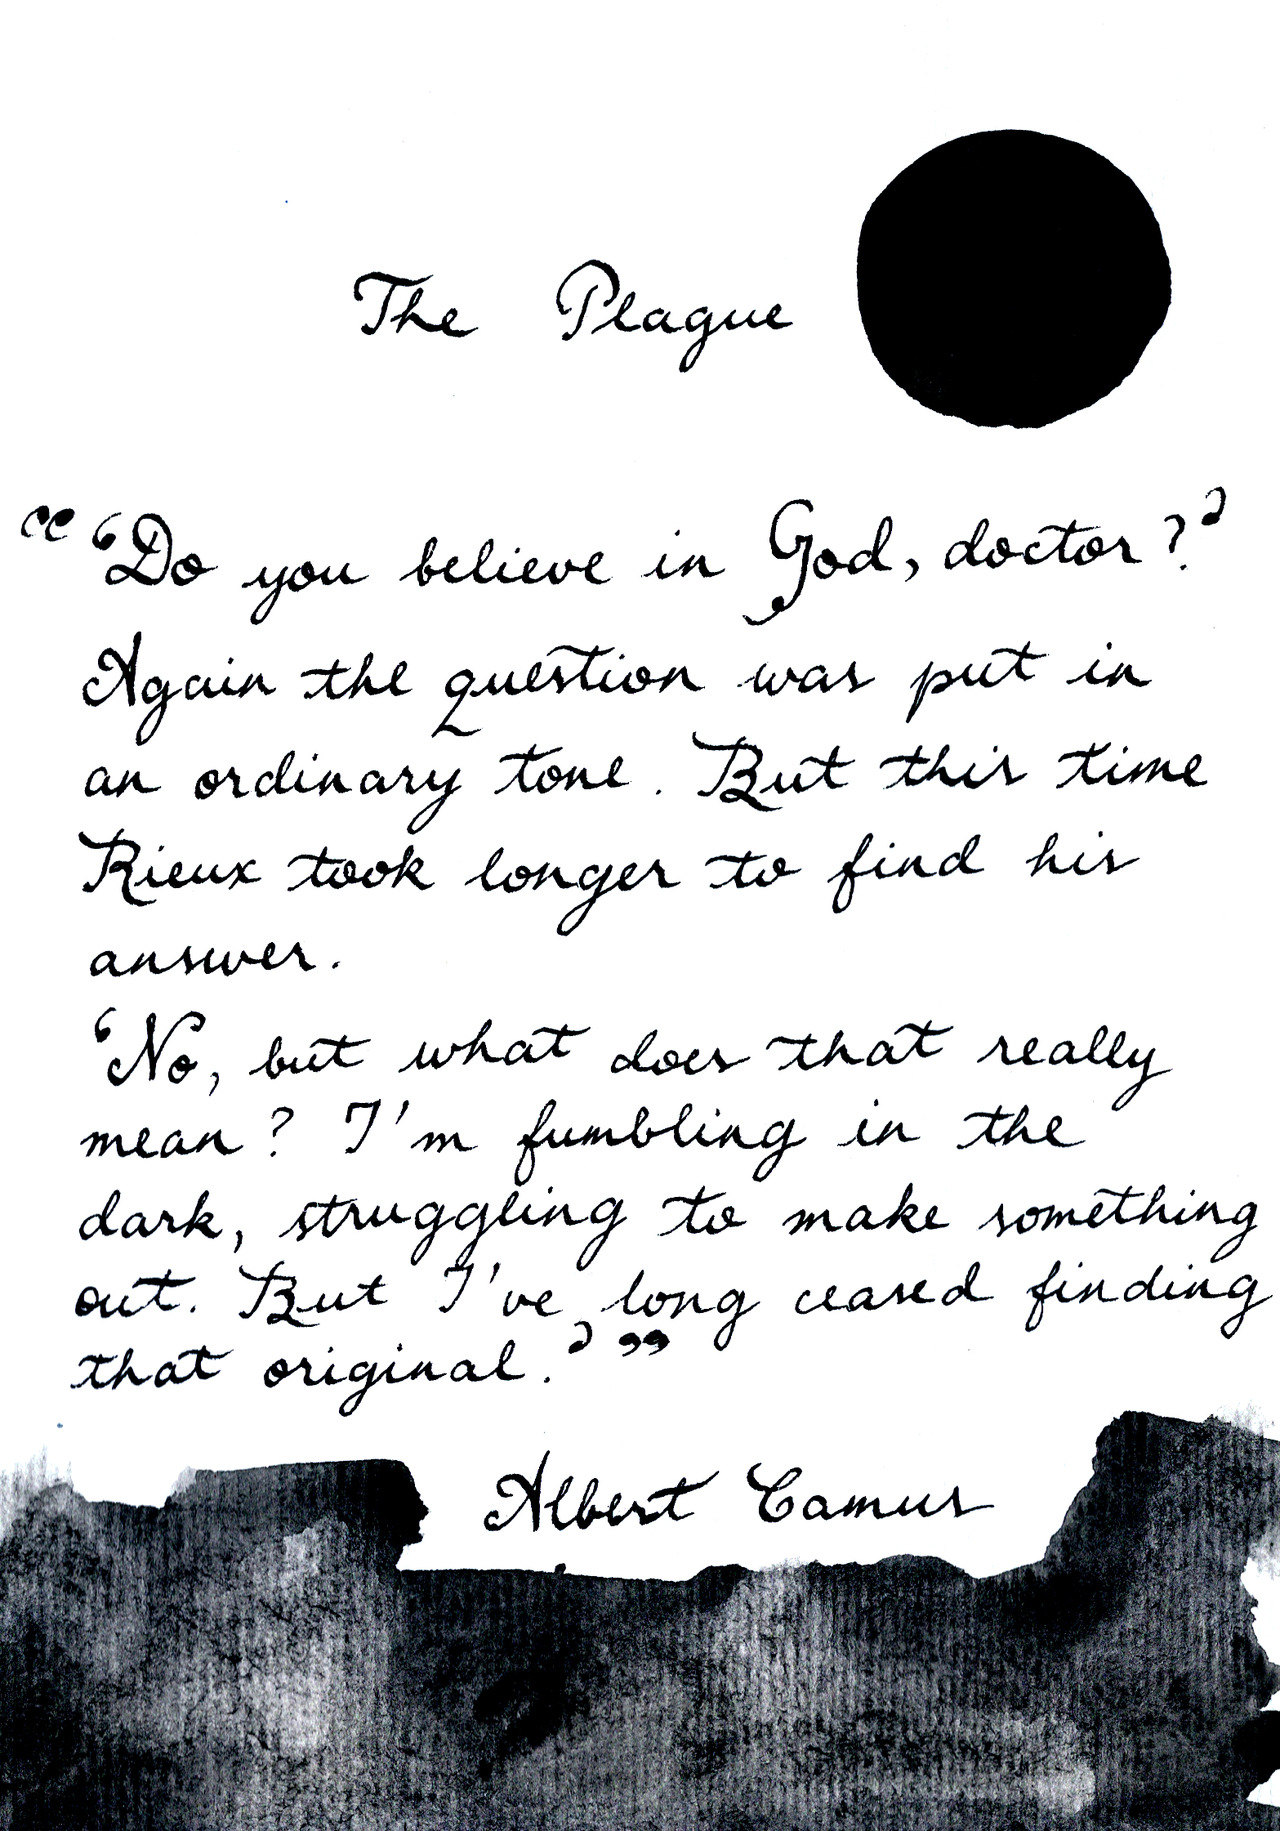 The Plague
“‘Do you believe in God, doctor?’
Again the question was put in
an ordinary tone. But this time
Rieux took longer to find his
answer.
‘No, but what does that really
mean? I'm fumbling in the
dark, struggling to make something
out. But I've long ceased finding
that original.’”
Albert Camus